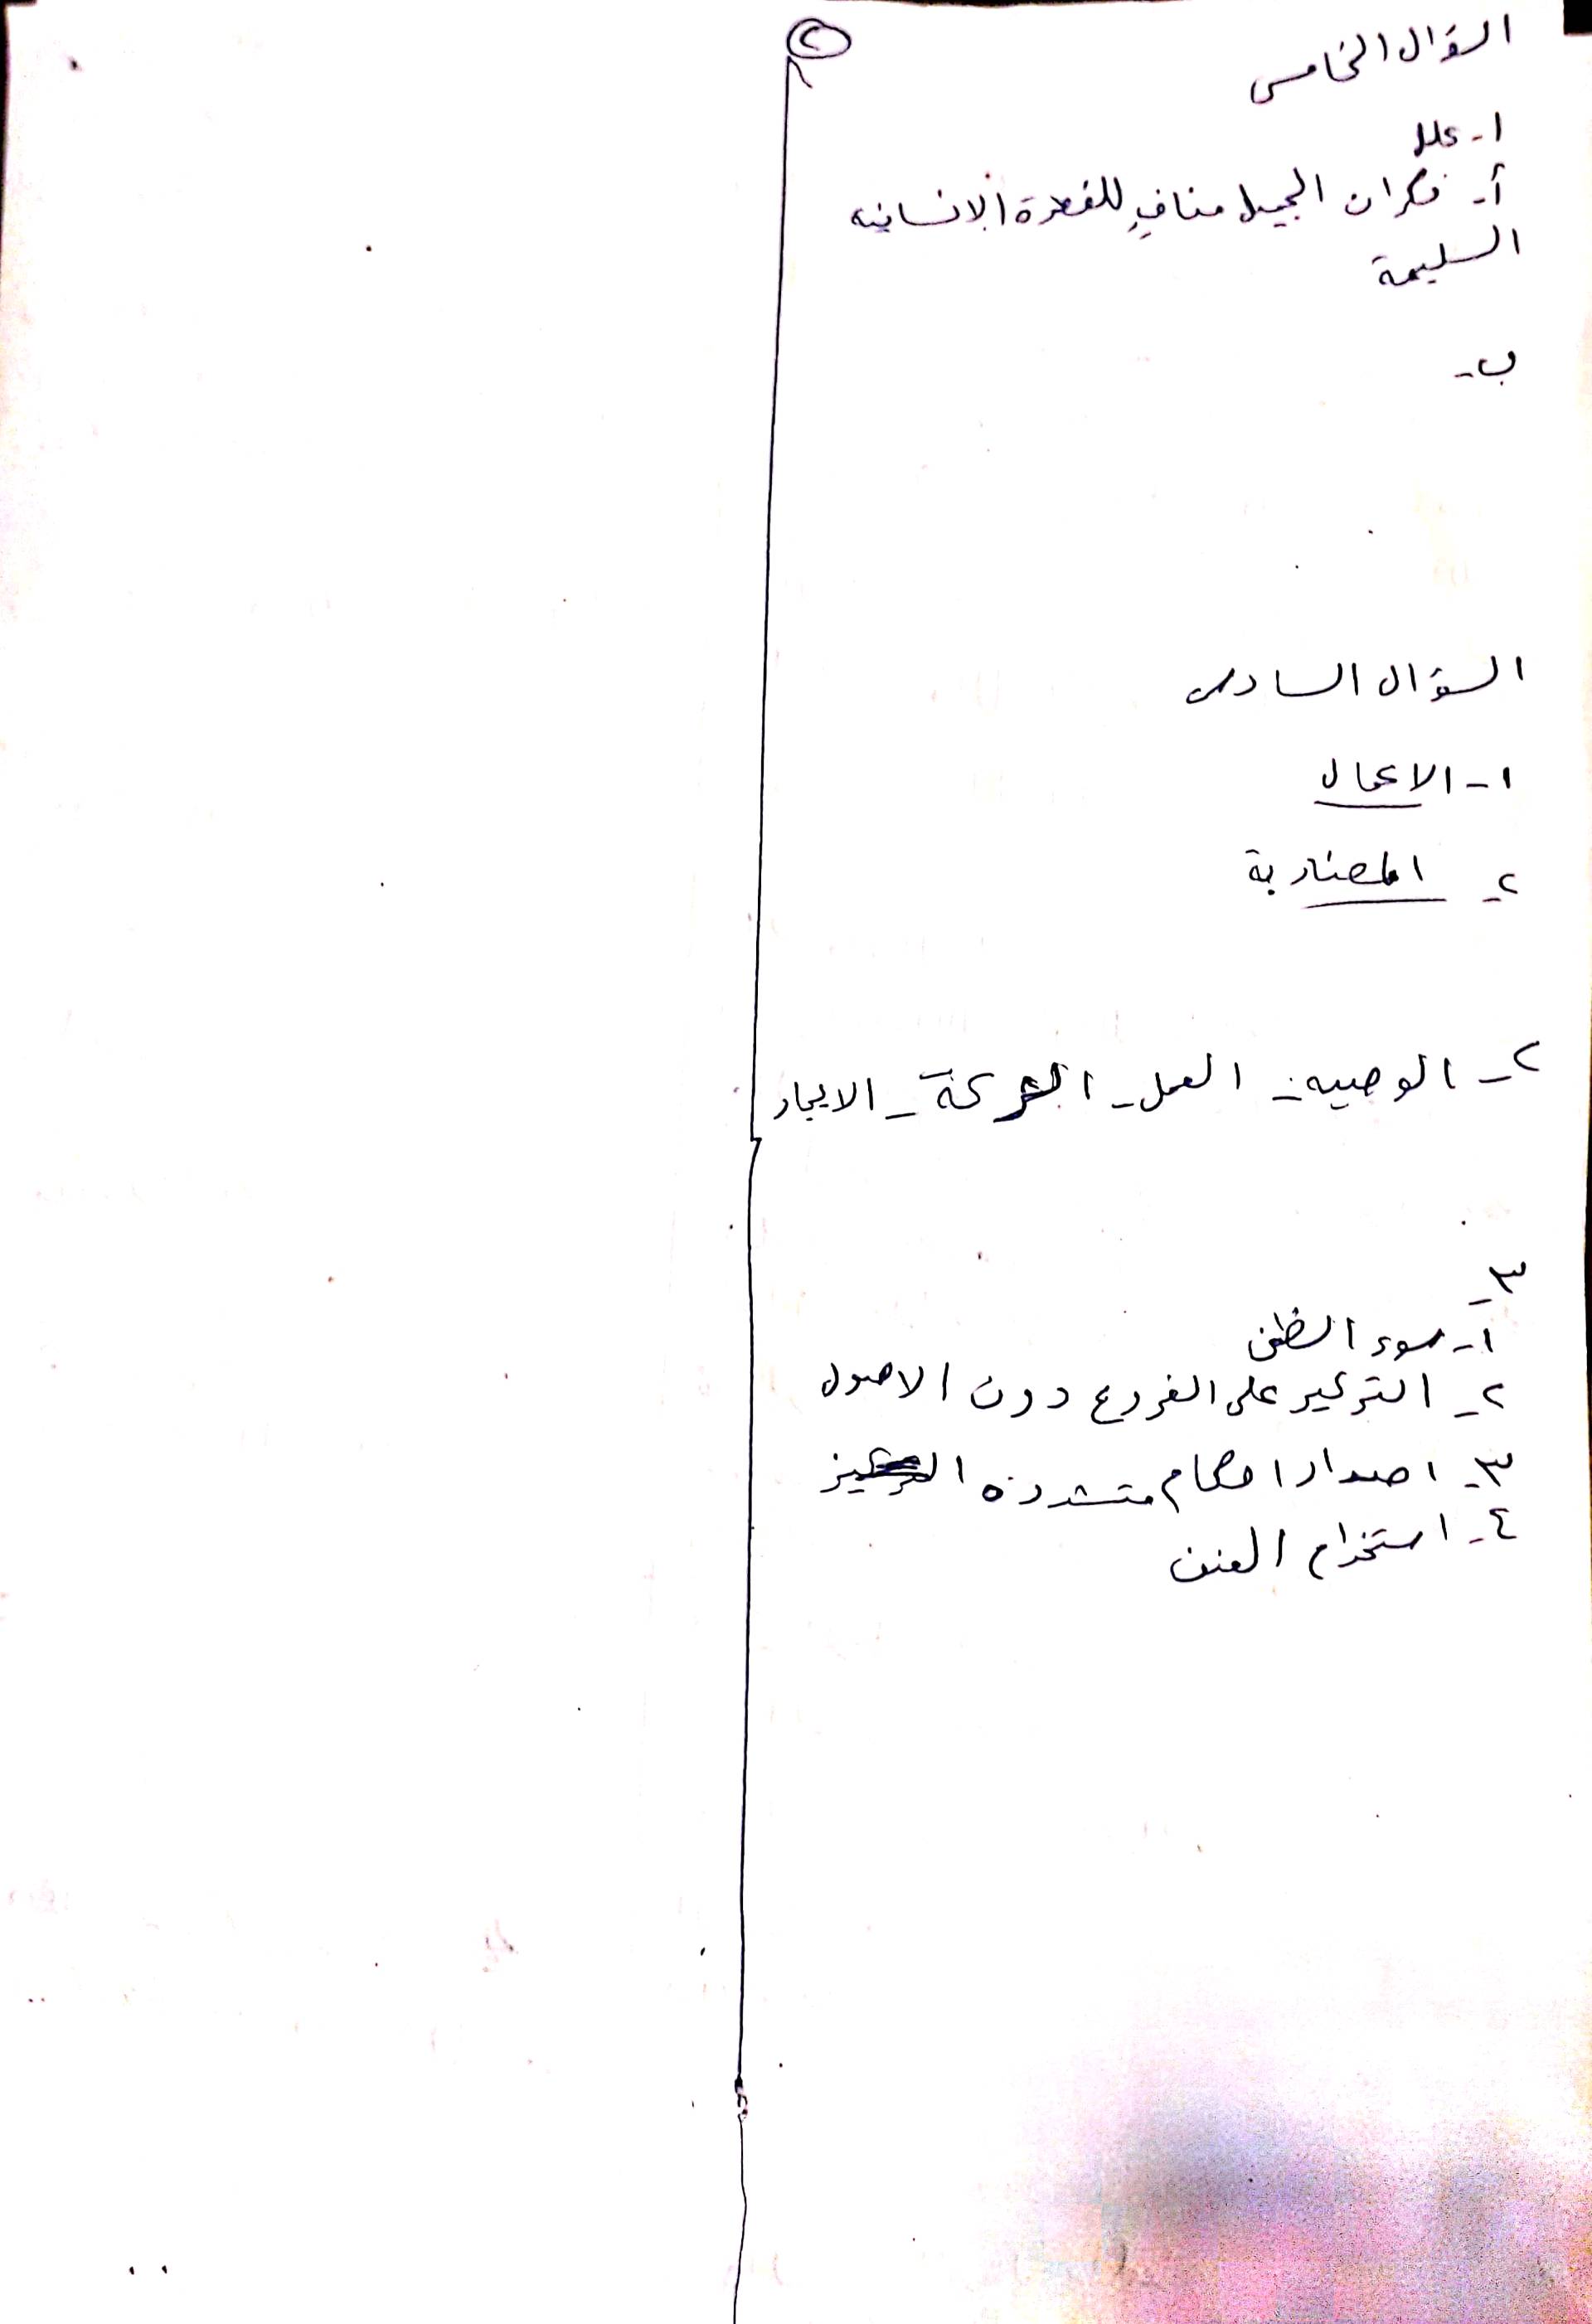 ٢
السؤال الخامس
١- علل
أ- نكران الجميل منافٍ للفطرة الانسانيه
السليمة
ب-
السؤال السادس
١- الاعمال
٢- المضاربة
٢- الوصيه - العمل - الشركة - الايجار
٣-
١- سوء الظن
٢- التركيز على الفروع دون الاصول
٣- اصدار احكام متشدده
٤- استخدام العنف